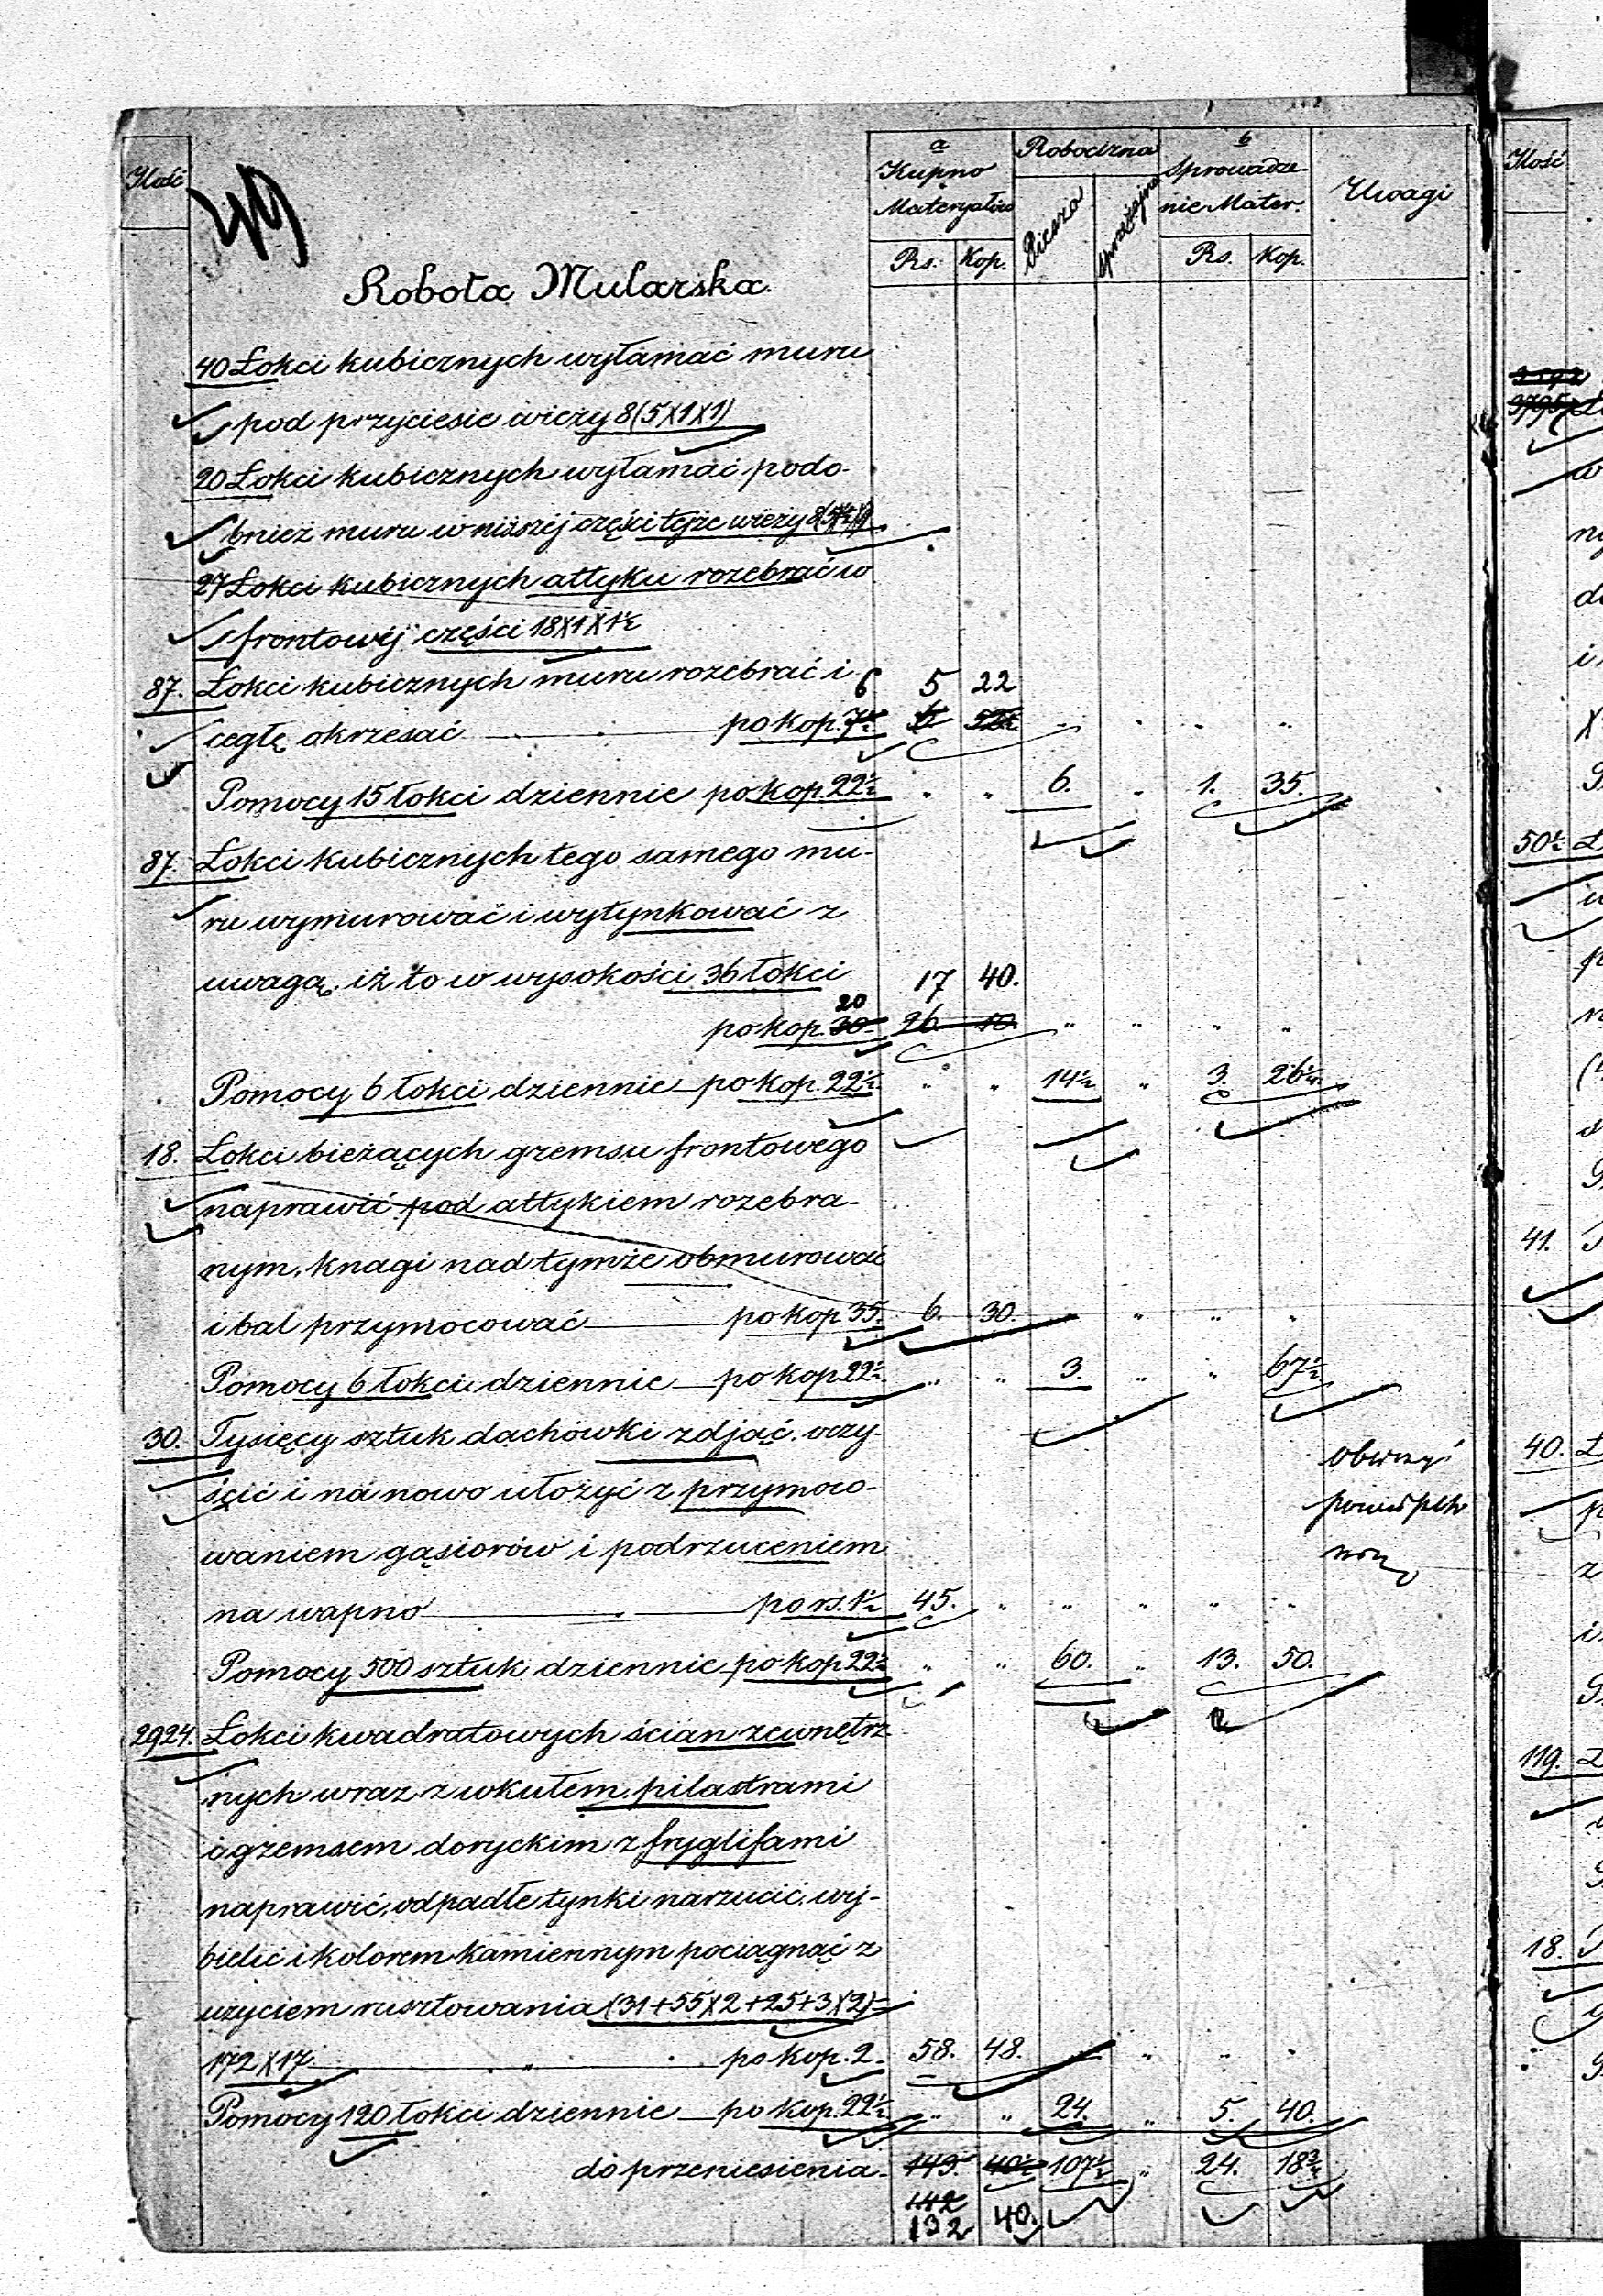 Ilość
a Kupno Materyałów Robocizna b Sprowadzenie Mater. Uwagi
Piesza Sprzężajna
Rs. Kop. Rs. Kop.
Robota Mularska.
40 Łokci kubicznych wyłamać muru
pod przyciesie wieży 8(5X1X1)
20 Łokci kubicznych wyłamać podo-
bnież muru w niższéj części tejże wieży
27 Łokci kubicznych attyku rozebrać w
frontowéj części 18X1X1½
87. Łokci kubicznych muru rozebrać i 6 5 22
cegłę okrzesać po kop. 7½ 6 52½ " " " "
Pomocy 15 łokci dziennie po kop. 22½ " " 6. " 1. 35.
87. Łokci kubicznych tego samego mu-
ru wymurować i wytynkować z
uwagą, iż to w wysokości 36 łokci 17 40.
20
po kop. 30 26 10. " " " "
Pomocy 6 łokci dziennie po kop. 22½ " " 14½ " 3. 26¼
18. Łokci bieżących gzemsu frontowego
naprawić pod attykiem rozebra-
nym, knagi nad tymże obmurować
i bal przymocować po kop. 35. 6. 30. " " " "
Pomocy 6 łokci dziennie po kop. 22½ " " 3. " " 67½
30. Tysięcy sztuk dachówki zdjąć, oczy-
ścić i na nowo ułożyć z przymoco-
waniem gąsiorów i podrzuceniem
na wapno po rs. 1½ 45. " " " " "
Pomocy 500 sztuk dziennie po kop. 22½ " " 60. " 13. 50.
2924. Łokci kwadratowych ścian zewnętrz-
nych wraz z wkutem pilastrami
i gzemsem doryckim z fryglifami
naprawić, odpadłe tynki narzucić, wy-
bielić i kolorem kamiennym pociągnąć z
użyciem rusztowania (31+55X2+25+3X2)=
172X17 po kop. 2. 58. 48. " " " "
Pomocy 120 łokci dziennie po kop. 22½ " " 24. " 5. 40.
do przeniesienia 149. 40½ 107½ " 24. 18¾
142
132 40.
Ilość
3795
50½
41.
40.
119.
18.